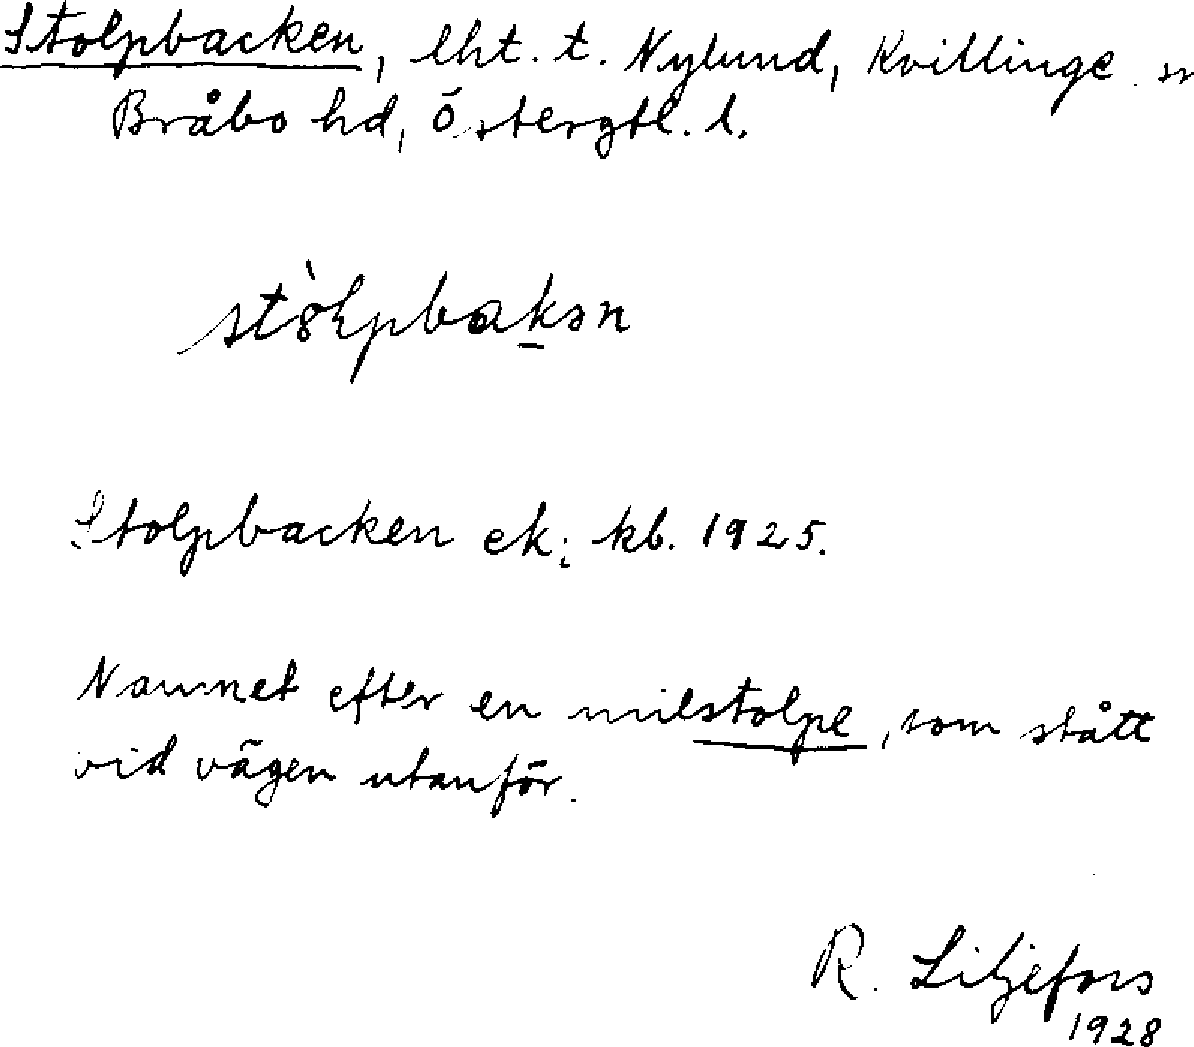 Stolpbacken, lht. t. Nylund, Kvillinge sn
Bråbo hd, Östergtl. l.
Stolpbacken ek; kb. 1925.
Namnet efter en milstolpe, som stått
vid vägen utanför.
R. Liljefors
1928